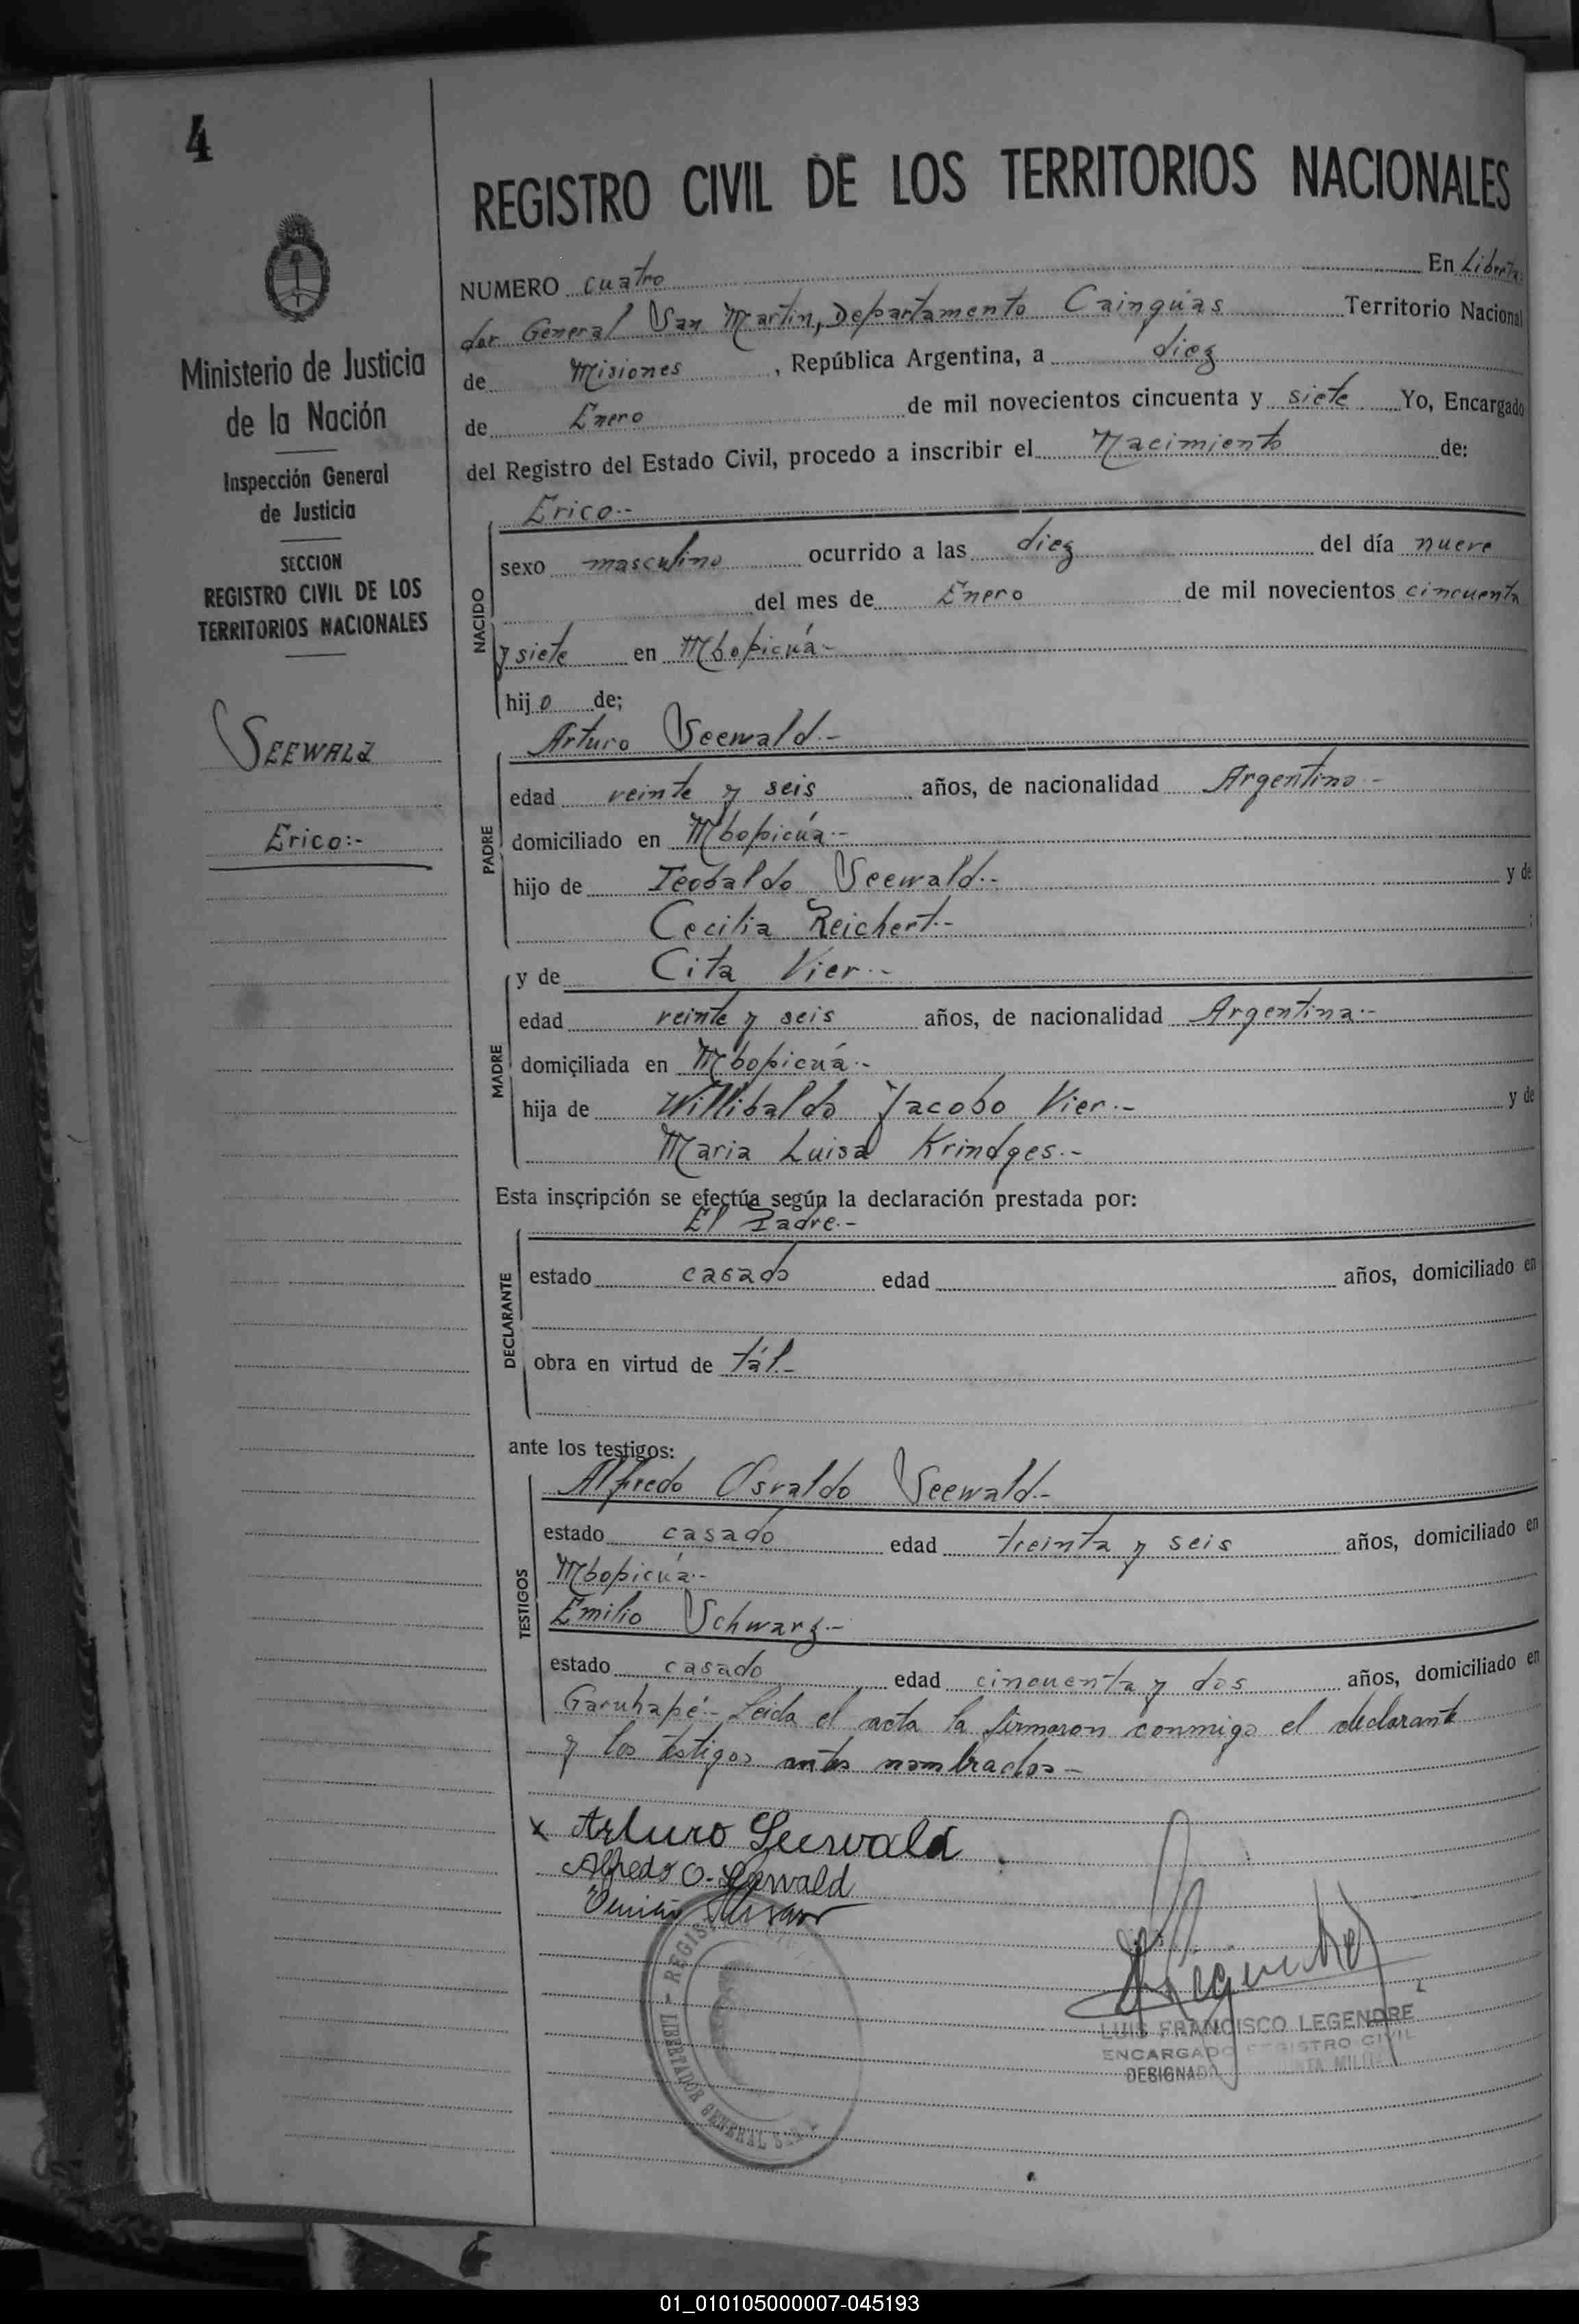 4
REGISTRO CIVIL DE LOS TERRITORIOS NACIONALES
Ministerio de Justicia
de la Nación
Inspección General
de Justicia
SECCION
REGISTRO CIVIL DE LOS
TERRITORIOS NACIONALES
SEEWALD
Erico:-
NUMERO cuatro En Liberta
dor General San Martin, Departamento Cainguas Territorio Nacional
de Misiones, República Argentina, a diez
de Enero de mil novecientos cincuenta y siete Yo, Encargado
del Registro del Estado Civil, procedo a inscribir el Nacimiento de:
Erico.-
NACIDO
sexo masculino ocurrido a las diez del día nueve
del mes de Enero de mil novecientos cincuenta
y siete en Mbopicuá-
hijo de;
Arturo Seewald.-
PADRE
edad veinte y seis años, de nacionalidad Argentino-
domiciliado en Mbopicúa.-
hijo de Teobaldo Seewald.- y de
Cecilia Reichert.-
y de Cita Vier.-
MADRE
edad veinte y seis años, de nacionalidad Argentina.-
domiciliada en Mbopicuá.-
hija de Willibaldo Jacobo Vier.- y de
Maria Luisa Krindges.-
Esta inscripción se efectúa según la declaración prestada por:
El Padre.-
DECLARANTE
estado casado edad años, domiciliado en
obra en virtud de tál.-
ante los testigos:
Alfredo Osvaldo Seewald.-
TESTIGOS
estado casado edad treinta y seis años, domiciliado en
Mbopicúa.-
Emilio Schwarz.-
estado casado edad cincuenta y dos años, domiciliado en
Garuhapé.- Leida el acta la firmaron conmigo el declarante
y los testigos antes nombrados-
x Arturo Seewald
Alfredo O. Seewald
REGIS
LIBERTADOR GENERAL SAN
LUIS FRANCISCO LEGENDRE
ENCARGADO REGISTRO CIVIL
DESIGNADO JUNTA MILITAR
01_010105000007-045193